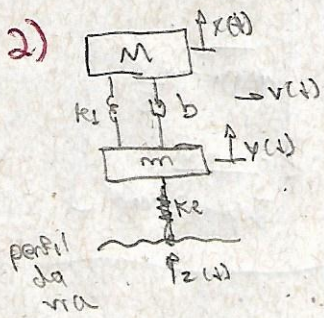 2)
M
x(t)
k1
b
v(t)
m
y(t)
k2
perfil
da
via
z(t)